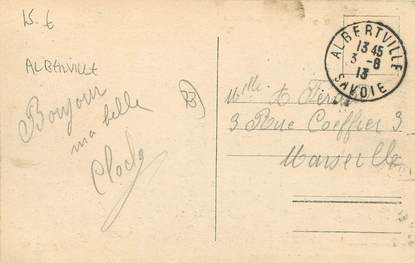 15 €
ALBERVILLE
Bonjour
ma belle
B
ALBERTVILLE
13 45
3 -8
13
SAVOIE
Mlle
3 Rue Coeffier 3
Marseille